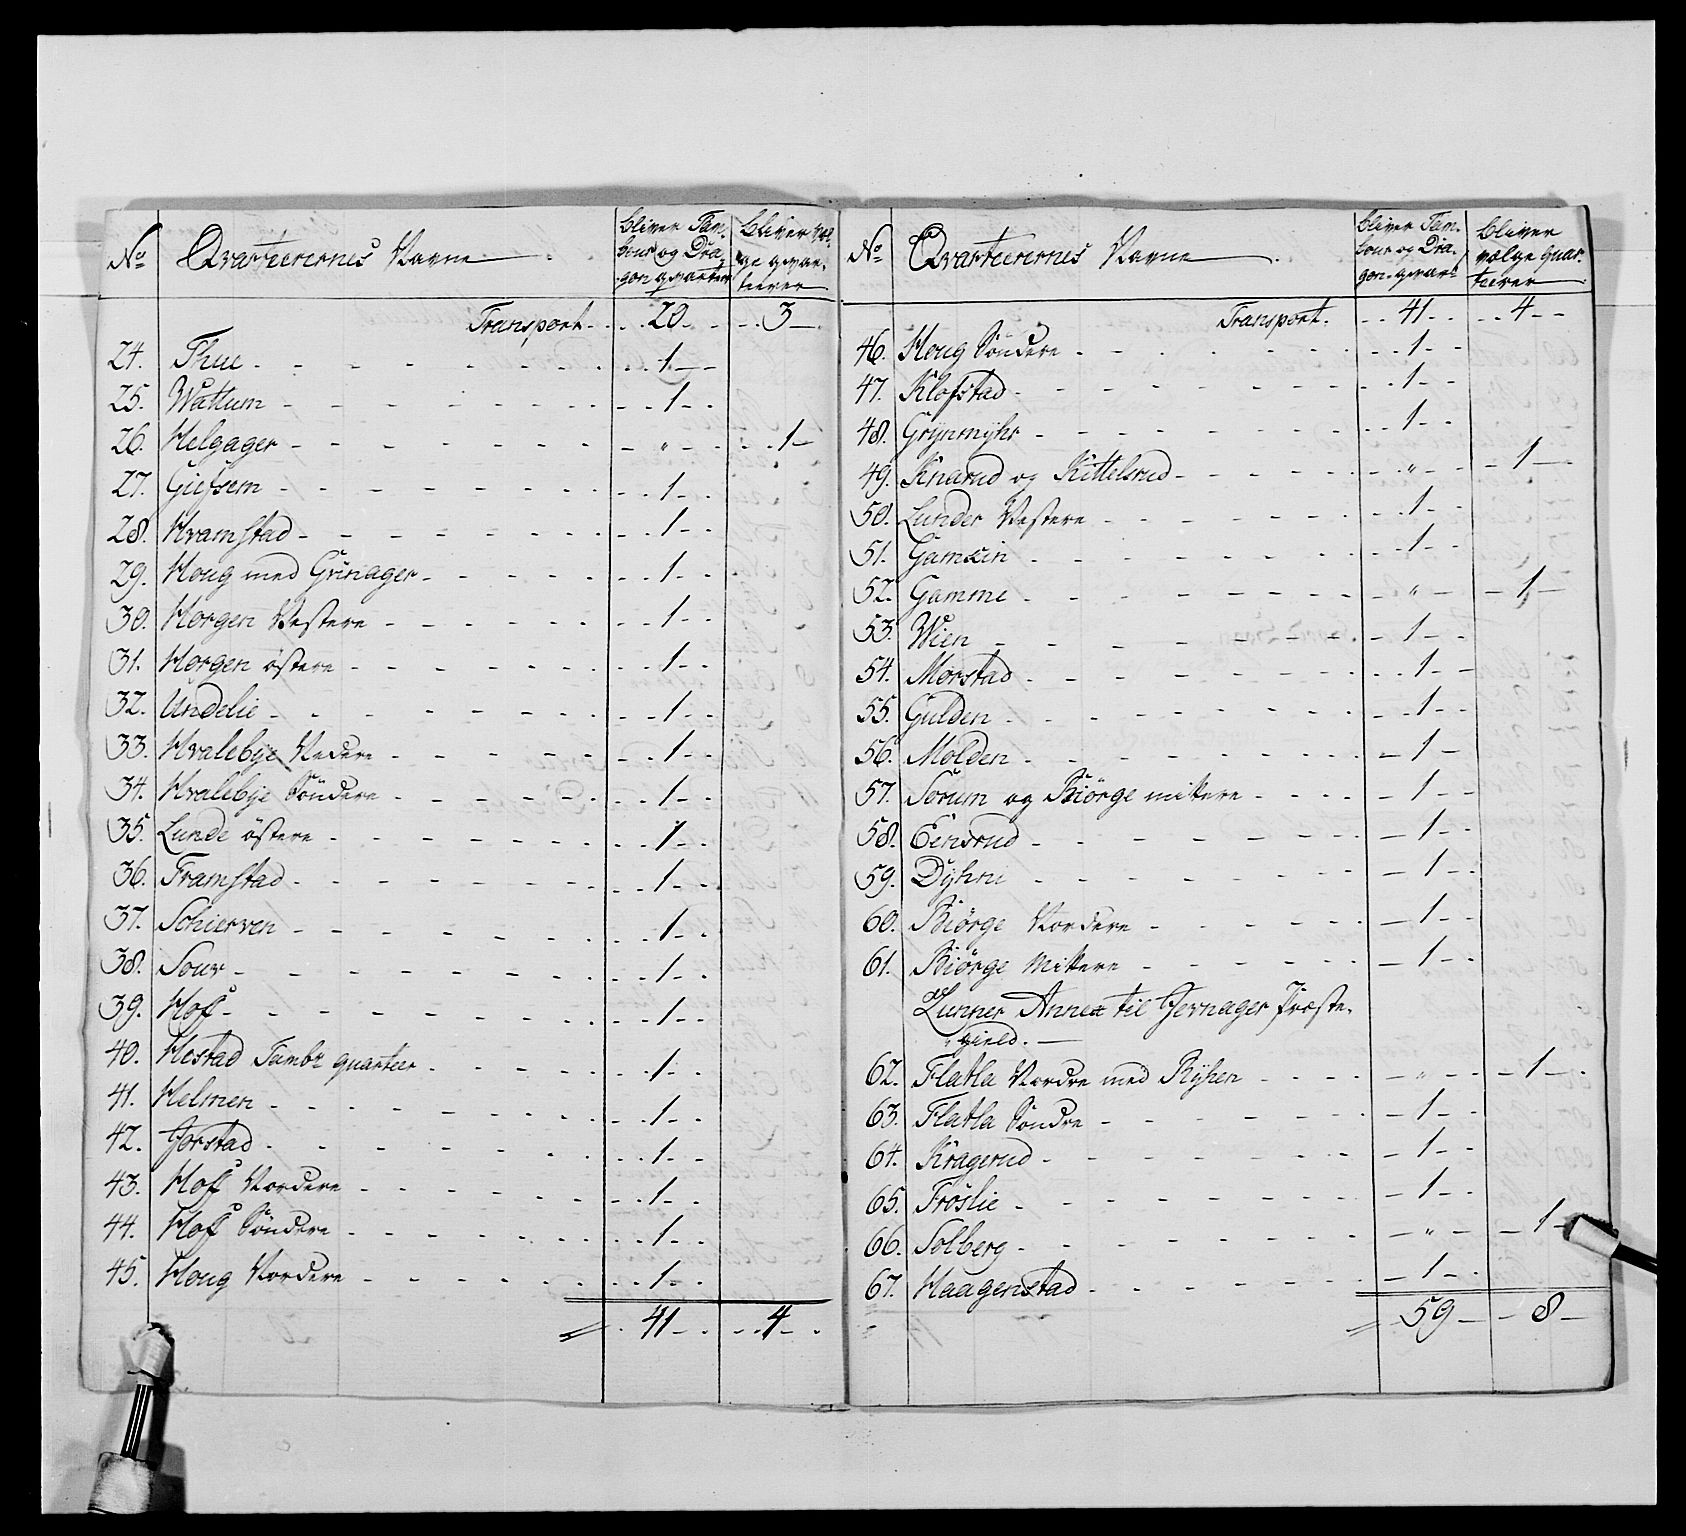 No Qvarteerernes Navne bliver Tam- bour og Dra- gon qvarteer bliver vel- ge qvar- teerer
Transport 20 3
24. Thue 1
25. Wattum 1
26. Helgager " 1
27. Giefsem 1
28. Hramstad 1
29. Houg med Grinager 1
30. Horgen Vestere 1
31. Horgen östere 1
32. Undelie 1
33. Hvalebye Nedere 1
34. Hvalebye Söndere 1
35. Lunde östere 1
36. Framstad 1
37. Schierven 1
38. Sour 1
39. Hof 1
40. Hestad Tambr quarteer 1
41. Helmen 1
42. Jorstad 1
43. Hof Nordere 1
44. Hof Söndere 1
45. Houg Nordere 1
41 4
No Qvarteerernes Navne bliver Tam- bour og Dra- gon qvar: bliver vælge quar- teerer
Transport. 41 4
46. Houg Söndere 1
47. Klofstad 1
48. Grÿnmÿhr 1
49. Knarud og Kittelsrud " 1
50. Lunder Vestere 1
51. Gamkin 1
52. Gamme " 1
53. Wien 1
54. Morstad 1
55. Gulden 1
56. Molden 1
57. Sorum og Biörge mittere 1
58. Eensrud 1
59. Dÿhrn 1
60. Biörge Nordere 1
61. Biörge Mittere 1
Lunner Annex til Jevnager Præste-
gield.
62. Flatla Nordre med Rÿhen " 1
63. Flatla Söndre 1
64. Kragerud 1
65. Fröslie 1
66. Solberg " 1
67. Haagenstad 1
59 8